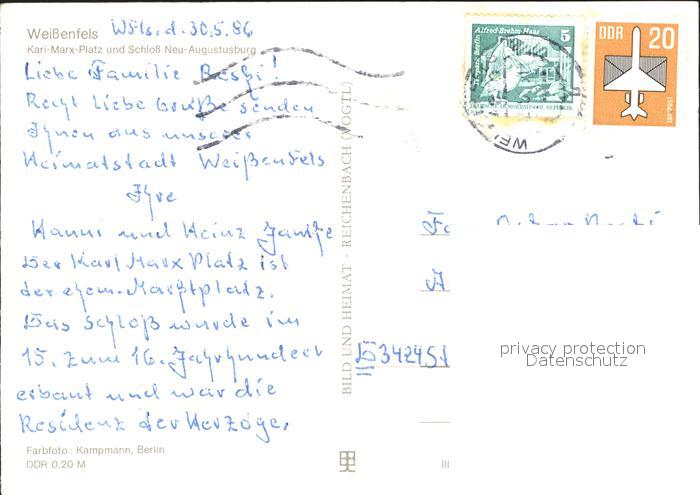 Weißenfels
Wfls. d. 30.5.86
Karl-Marx-Platz und Schloß Neu-Augustusburg
Liebe Familie
Recht liebe Grüße senden
Ihnen aus unserer
Heimatstadt Weißenfels
Ihre
Hanni und Heinz
Der Karl Marx Platz ist
der ehem. Marktplatz.
Das Schloß wurde im
15. zum 16. Jahrhundert
erbaut und war die
Residenz der Herzöge.
Farbfoto: Kampmann, Berlin
DDR 0,20 M
BILD UND HEIMAT · REICHENBACH (VOGTL)
Alfred-Brehm-Haus
5
DDR 20
LUFTPOST
WEI
Fa
A
342451
privacy protection
Datenschutz
III